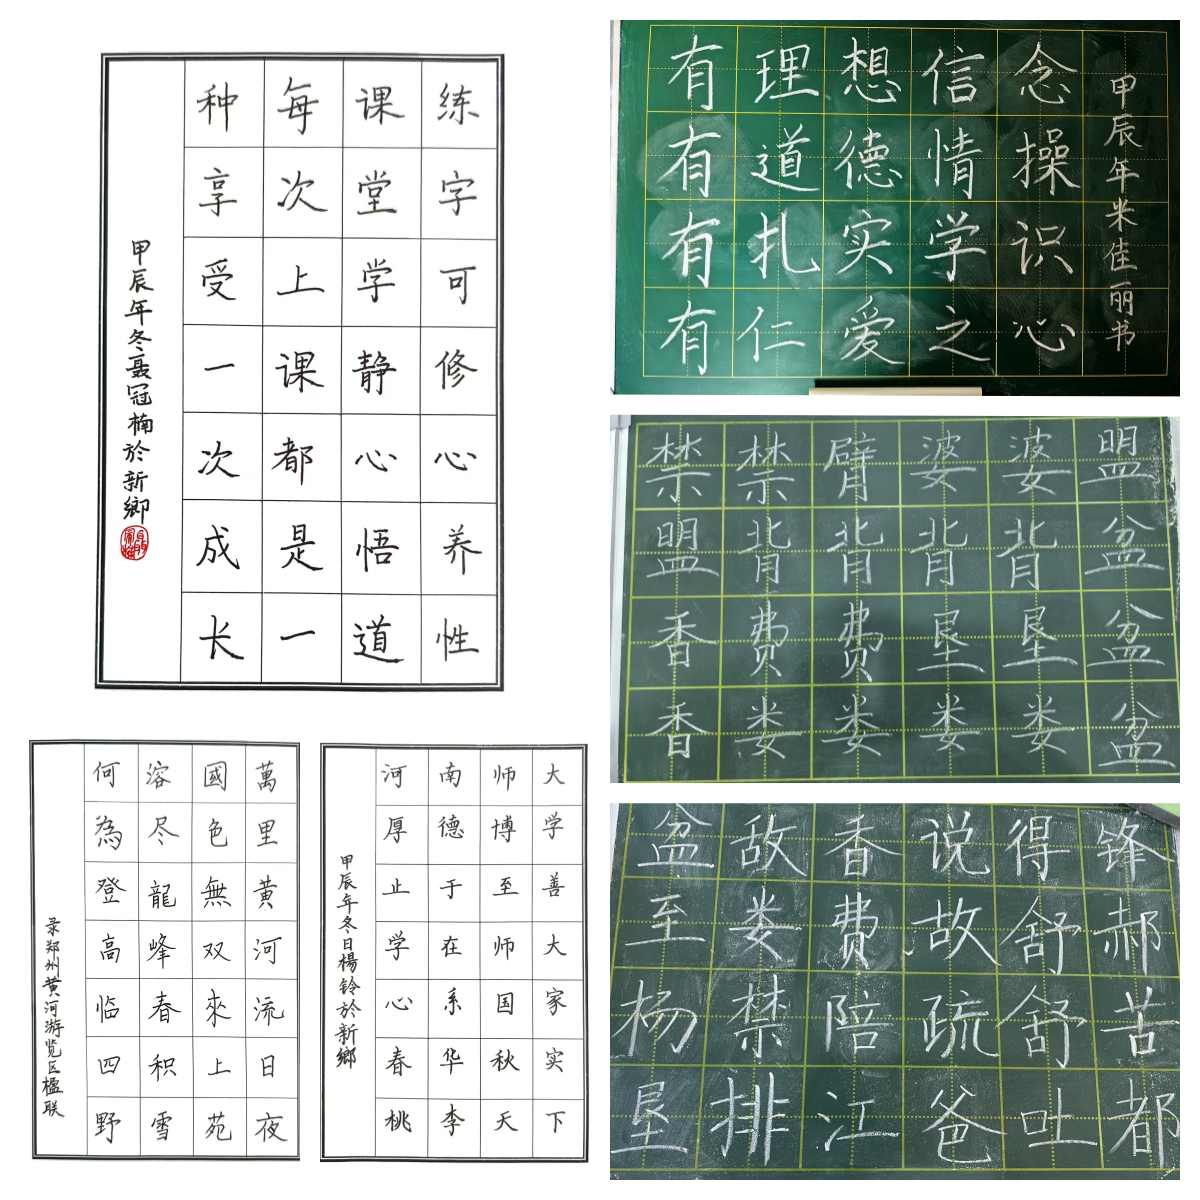 练字可修心养性
课堂学静心悟道
每次上课都是一
种享受一次成长
甲辰年冬聂冠楠於新鄉
有理想信念
有道德情操
有扎实学识
有仁爱之心
甲辰年米佳丽书
禁禁臂婆婆盟
盟背背背背盆
香费费垦垦盆
香娄娄娄娄盆
萬里黄河流日夜
國色無双來上苑
溶尽龍峰春积雪
何為登高临四野
录郑州黄河游览区楹联
河南师大
厚德博学
止于至善
学在师大
心系国家
春华秋实
桃李天下
甲辰年冬日楊铃於新鄉
盆敌香说得锋
至娄费故舒郝
杨禁陪疏舒苦
垦排江爸吐都